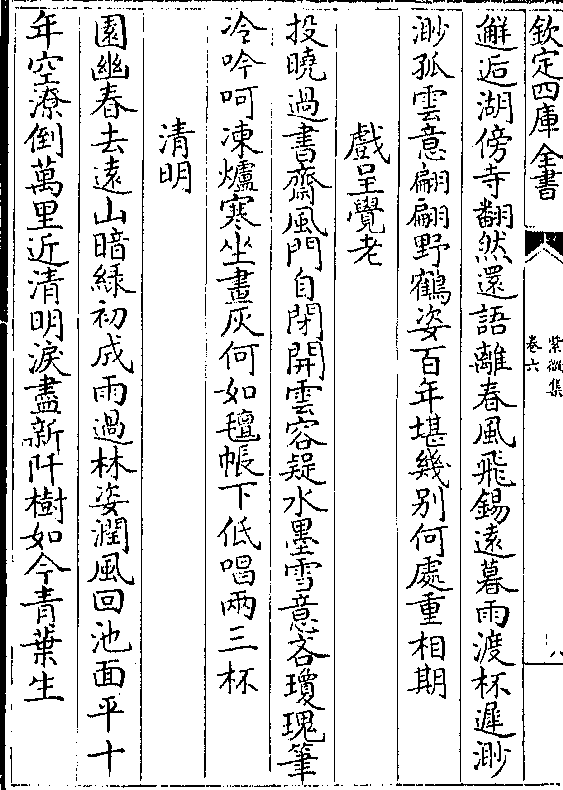 欽定四庫全書
紫微集
卷六
八
邂逅湖傍寺翻然還語離春風飛錫遠暮雨渡杯遲渺
渺孤雲意翩翩野鶴姿百年堪幾别何處重相期
戲呈覺老
投曉過書齋風門自閉開雲容疑水墨雪意吝瓊瑰筆
冷吟呵凍爐寒坐畫灰何如氊帳下低唱兩三杯
清明
園幽春去遠山暗緑初成雨過林姿潤風回池面平十
年空潦倒萬里近清明淚盡新阡樹如今青葉生